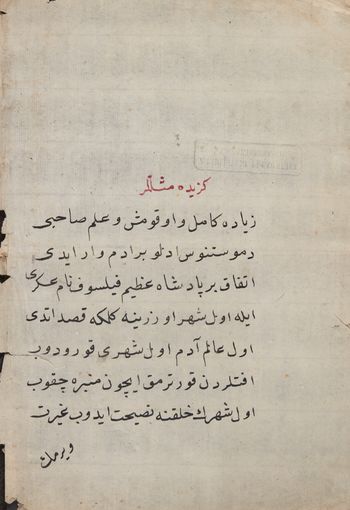 كزیده مثللر
زیاده كامل و اوقومش و علم صاحبی
دموستنوس ادلو بر ادم وار ایدی
اتفاق بر پادشاه عظیم فیلسوف نام عسكری
ایله اول شهر اوزرینه كلمكه قصد اتدی
اول عالم آدم اول شهری قورودوب
افتلردن قورترمق ایچون منبره چقوب
اول شهرك خلقنه نصیحت ایدوب غیرت
ویرمكه